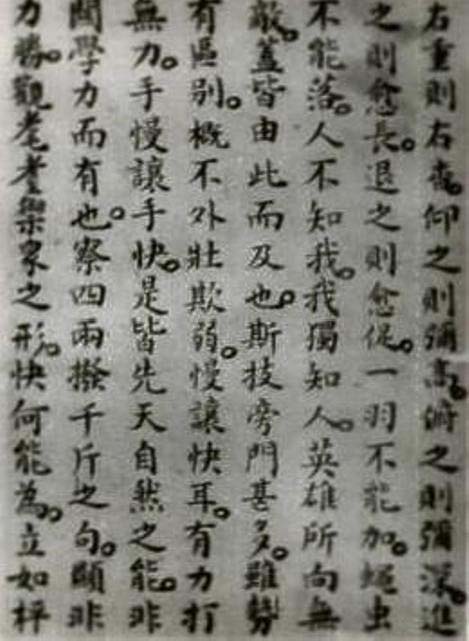 右重則右杳。仰之則彌高。俯之則彌深。進
之則愈長。退之則愈促。一羽不能加。蠅虫
不能落。人不知我。我獨知人。英雄所向無
敵。蓋皆由此而及也。斯技旁門甚多。雖勢
有區别。概不外壯欺弱。慢讓快耳。有力打
無力。手慢讓手快。是皆先天自然之能。非
関學力而有也。察四兩撥千斤之句。顯非
力勝。觀耄耋禦衆之形。快何能為。立如枰